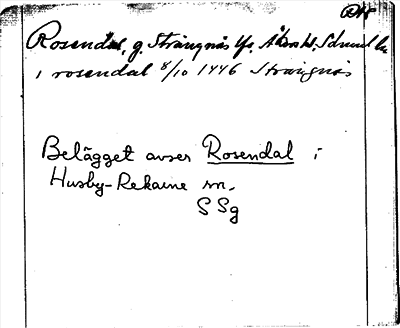 Rosendal, g. Strängnäs lfs. Åkers hd. Sdmnl. län
i rosendal 8/10 1446 Strängnäs
Belägget avser Rosendal i
Husby-Rekarne sn.
SSg